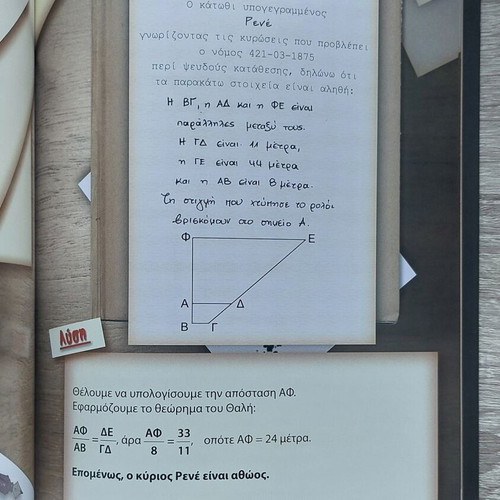 Ο κάτωθι υπογεγραμμένος
Ρενέ
γνωρίζοντας τις κυρώσεις που προβλέπει
ο νόμος 421-03-1875
περί ψευδούς κατάθεσης, δηλώνω ότι
τα παρακάτω στοιχεία είναι αληθή:
Η ΒΓ, η ΑΔ και η ΦΕ είναι
παράλληλες μεταξύ τους.
Η ΓΔ είναι 11 μέτρα,
η ΓΕ είναι 44 μέτρα
και η ΑΒ είναι 8 μέτρα.
Τη στιγμή που χτύπησε το ρολόι
βρισκόμουν στο σημείο Α.
Φ Ε
Α Δ
Β Γ
Λύση
Θέλουμε να υπολογίσουμε την απόσταση ΑΦ.
Εφαρμόζουμε το θεώρημα του Θαλή:
ΑΦ/ΑΒ = ΔΕ/ΓΔ, άρα ΑΦ/8 = 33/11, οπότε ΑΦ = 24 μέτρα.
Επομένως, ο κύριος Ρενέ είναι αθώος.